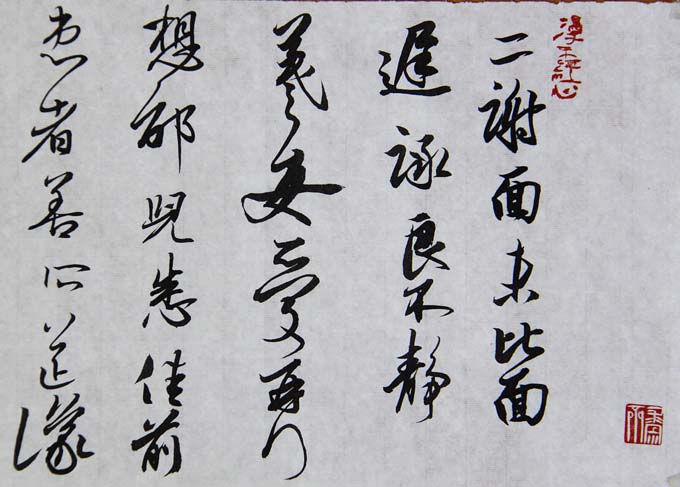 二謝面未比面
遲詠良不靜
羲之女愛再拜
想邰兒悉佳前
患者善所送議